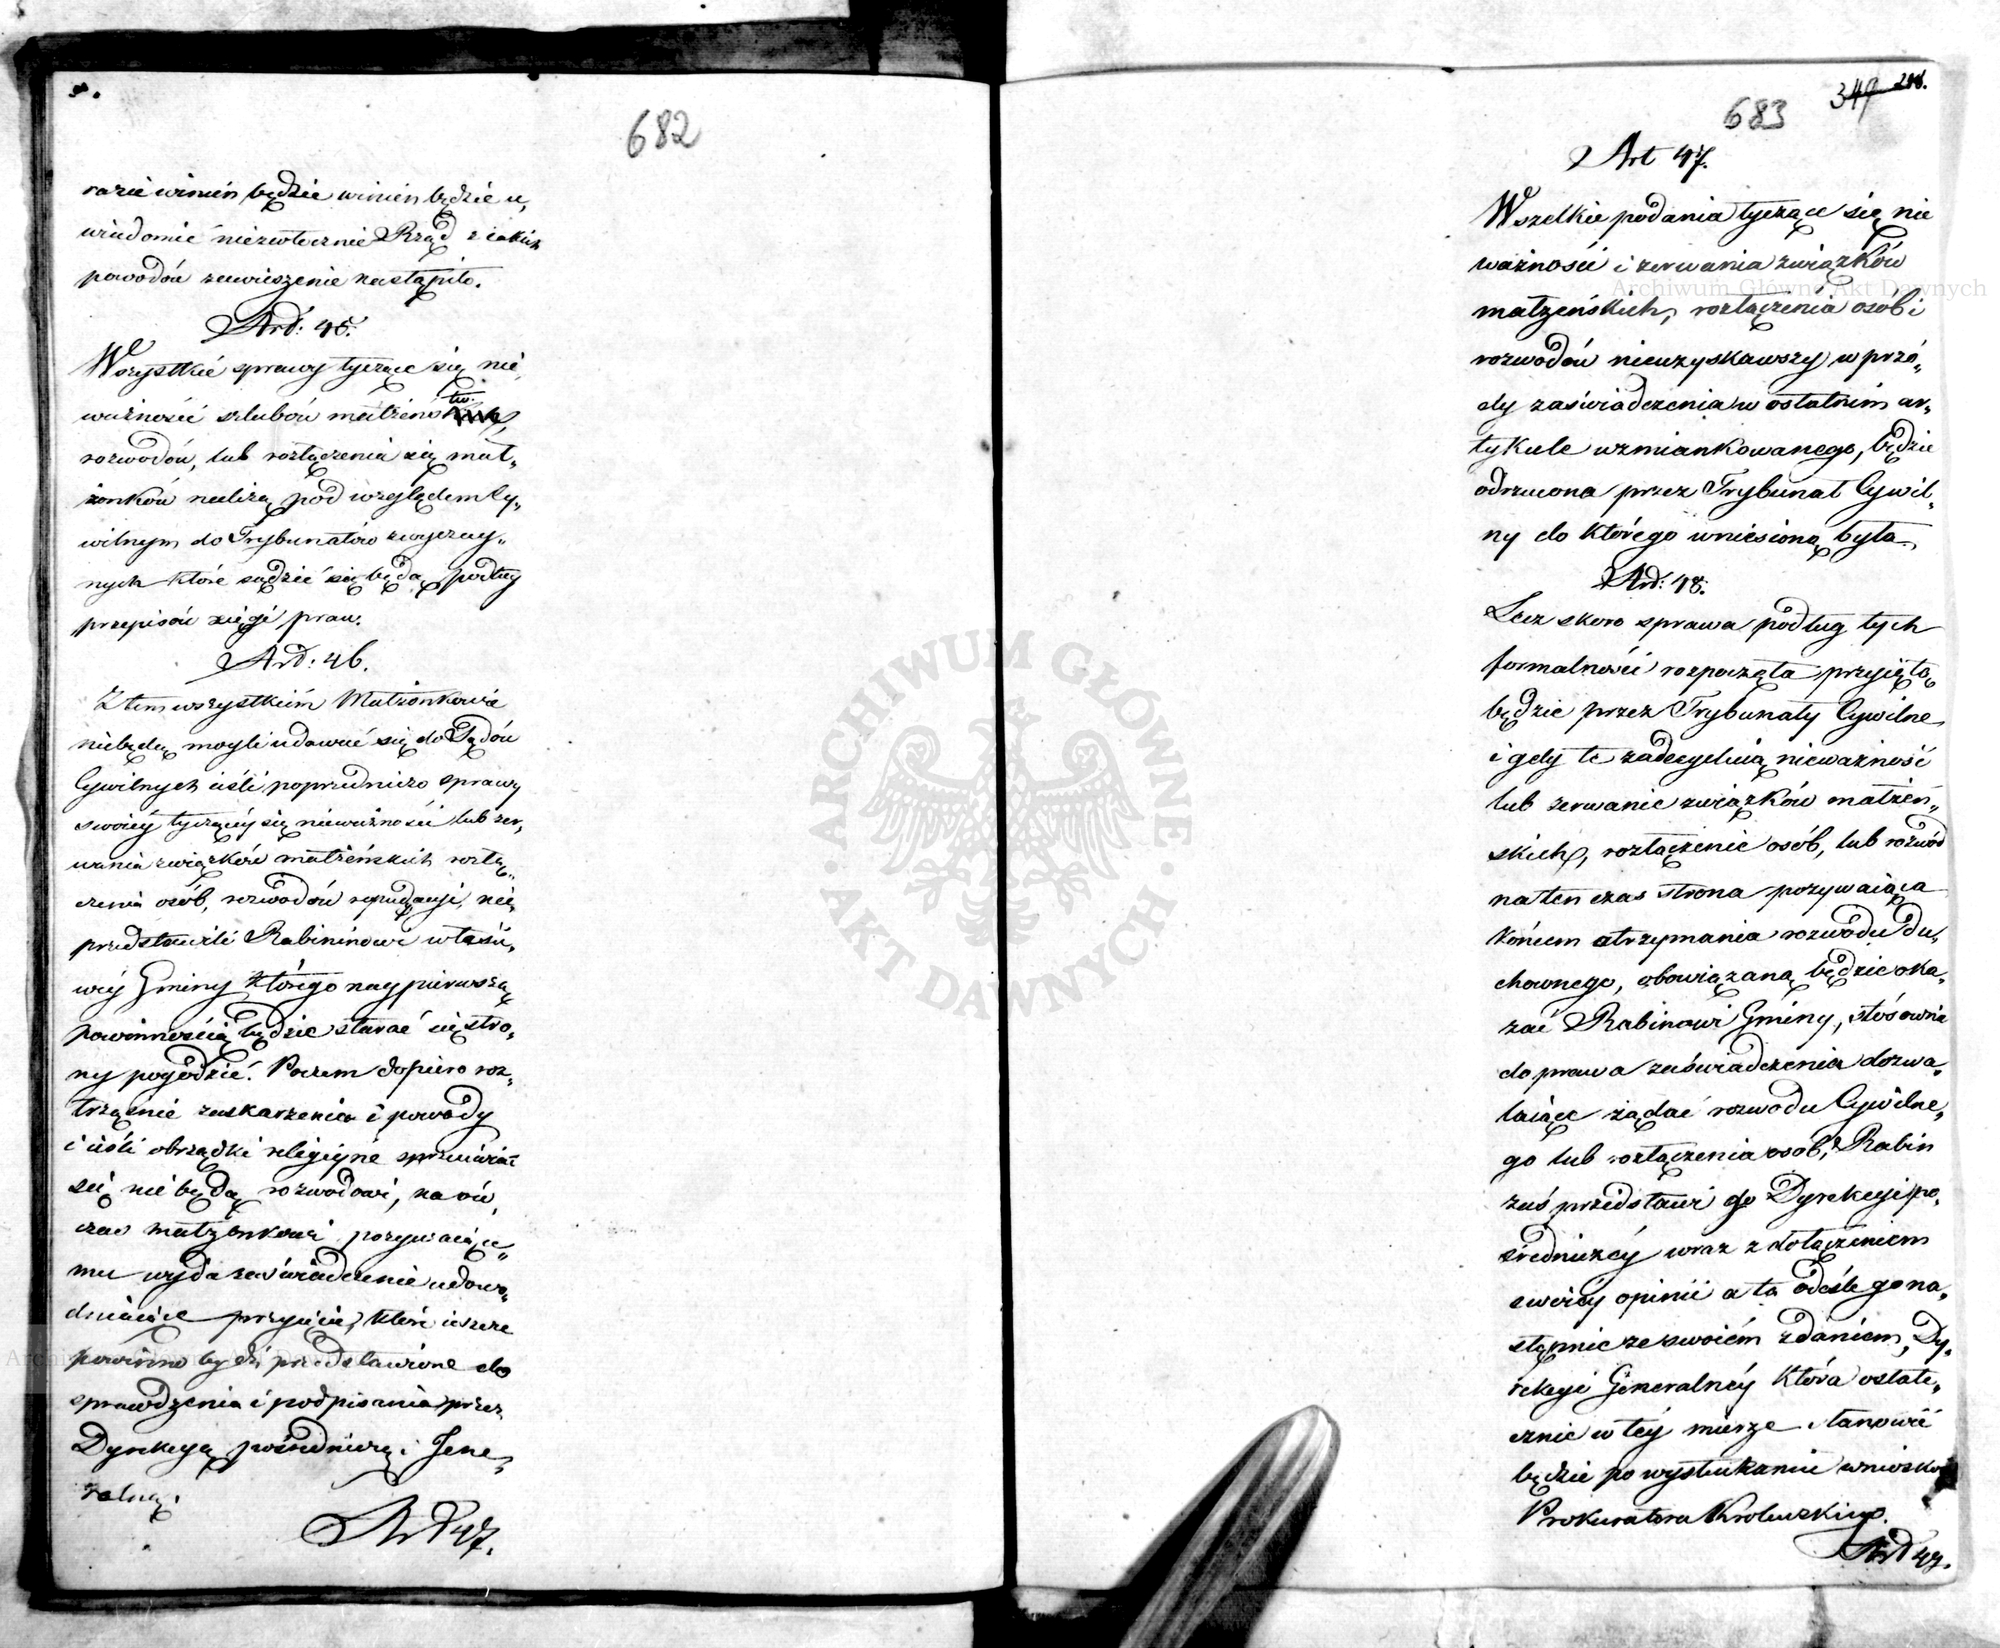 682
razie winien będzie winien będzie u,
wiadomić niezwłocznie Rząd z iakich
powodów zawieszenie nastąpiło.
Art: 45.
Wszystkie sprawy tyczące się nie,
ważności szlubów małżeńs tw.
rozwodów, lub rozłączenia się mał„
żonków należą pod względem Cy„
wilnym do Trybunałów zwyczay„
nych które sądzić się będą podług
przepisów xięgi praw.
Art: 46.
Z tem wszystkiem Małżonkowie
niebędą mogli udawać się do Sądów
Cywilnych ieśli poprzedniczo sprawy
swoiéy tyczącéy się nieważności lub zer,
wania związków małżeńskich rozłą„
czenia osób, rozwodów repudyacyi, nie,
przedstawili Rabininowi właści,
wéy Gminy którego naypierwszą
powinnością będzie starać się stro,
ny pogodzić. Poczem dopiero roz„
trząśnie zaskarzenia i powody
i ieśli obrządki religiyne sprzeciwiać
się nie będą rozwodowi, na ów,
czas małżonkowi pozywaiące„
mu wyda zaświadczenie udowo„
dniaiące przyięcie, które ieszcze
powinno bydź przedstawione do
sprawdzenia i podpisania przez
Dyrekcyą pośredniczą i Jene„
ralną.
Art 47.
347 296.
683
Art 47.
Wszelkie podania tyczące się nie
ważności i zerwania związków
małżeńskich, rozłączenia osób i
rozwodów nieuzyskawszy w przó„
dy zaświadczenia w ostatnim ar„
tykule wzmiankowanego, będzie
odrzucona przez Trybunał Cywil„
ny do którego wniesioną była.
Art: 48.
Lecz skoro sprawa podług tych
formalności rozpoczęta przyiętą
będzie przez Trybunały Cywilne
i gdy te zadecyduią nieważność
lub zerwanie związków małżeń„
skich, rozłączenie osób, lub rozwód
na ten czas strona pozywaiąca
końcem otrzymania rozwodu du„
chownego, obowiązaną będzie oka„
zać Rabinowi Gminy, stósownie
do prawa zaświadczenia dozwa„
laiące żądać rozwodu Cywilne„
go lub rozłączenia osób, Rabin
zaś przedstawi go Dyrekcyi po„
średniczéy wraz z dołączeniem
swoiéy opinii a ta odeśle go na„
stępnie ze swoiém zdaniem, Dy„
rekcyi Generalnéy która ostate„
cznie w téy mierze stanowić
będzie po wysłuchaniu wniosków
Prokuratora Królewskiego.
Art 49.
ARCHIWUM GŁÓWNE
AKT DAWNYCH
Archiwum Główne Akt Dawnych